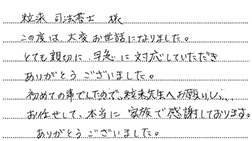 粒来 司法書士 様
この度は、大変お世話になりました。
とても親切に、早急に対応していただき
ありがとうございました。
初めての事でしたので、粒来先生へお願いし、、、
お任せして、本当に家族で感謝しております。
ありがとうございました。